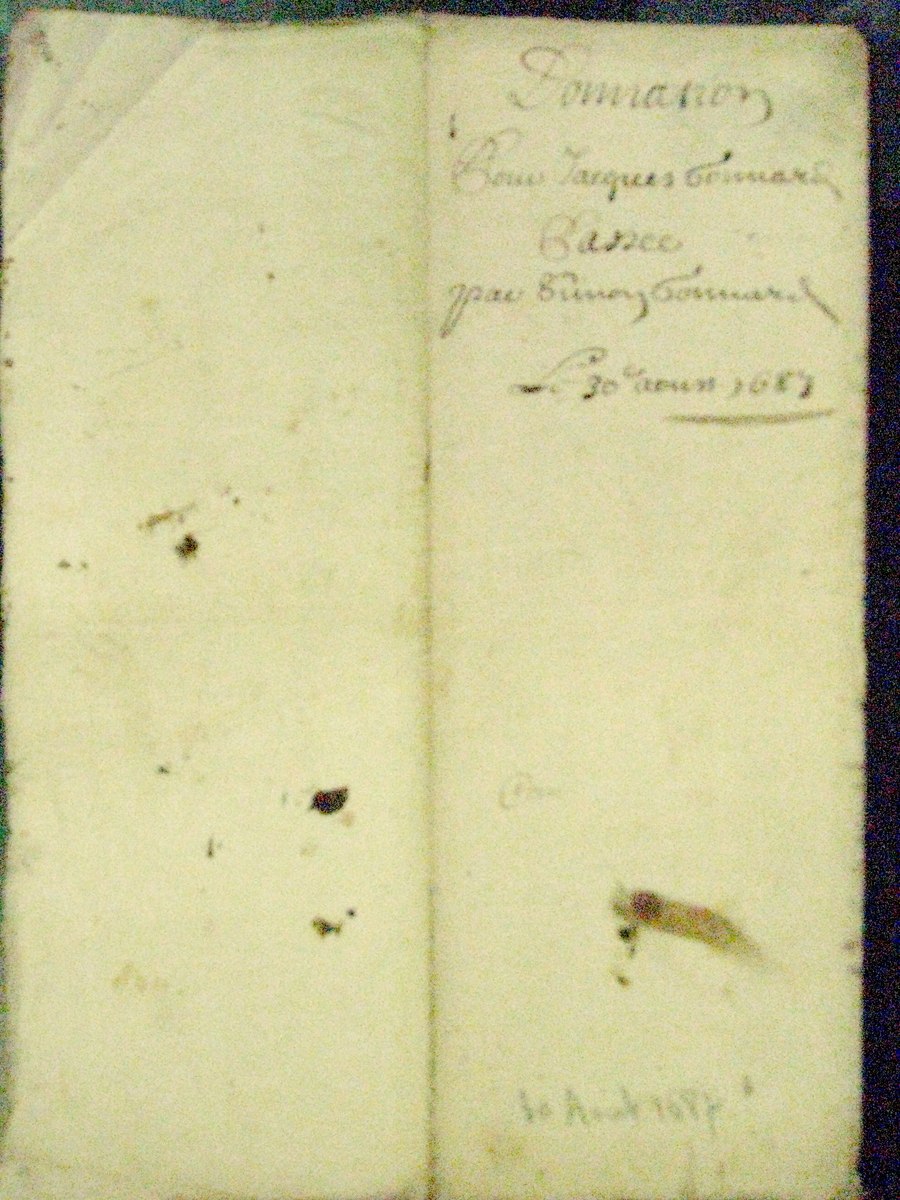 Donnation
Pour Jacques Tonnard
Passee
par Simon Tonnard
Le 30e aoust 1687
30 Août 1687